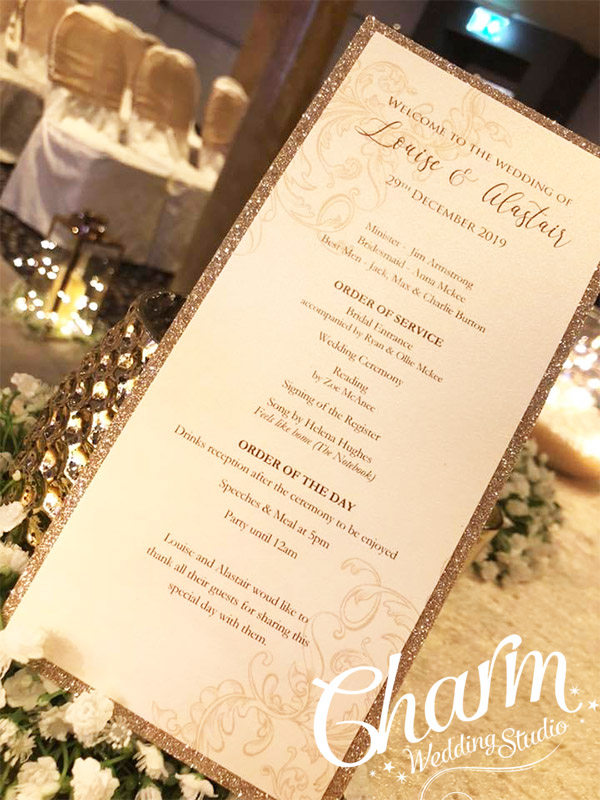 WELCOME TO THE WEDDING OF
Louise & Alastair
29TH DECEMBER 2019
Minister - Jim Armstrong
Bridesmaid - Anna Mckee
Best Men - Jack, Max & Charlie Burton
ORDER OF SERVICE
Bridal Entrance
accompanied by Ryan & Ollie Mckee
Wedding Ceremony
Reading
by Zoe McAnee
Signing of the Register
Song by Helena Hughes
Feels like home (The Notebook)
ORDER OF THE DAY
Drinks reception after the ceremony to be enjoyed
Speeches & Meal at 5pm
Party until 12am
Louise and Alastair woud like to
thank all their guests for sharing this
special day with them.
Charm
Wedding Studio